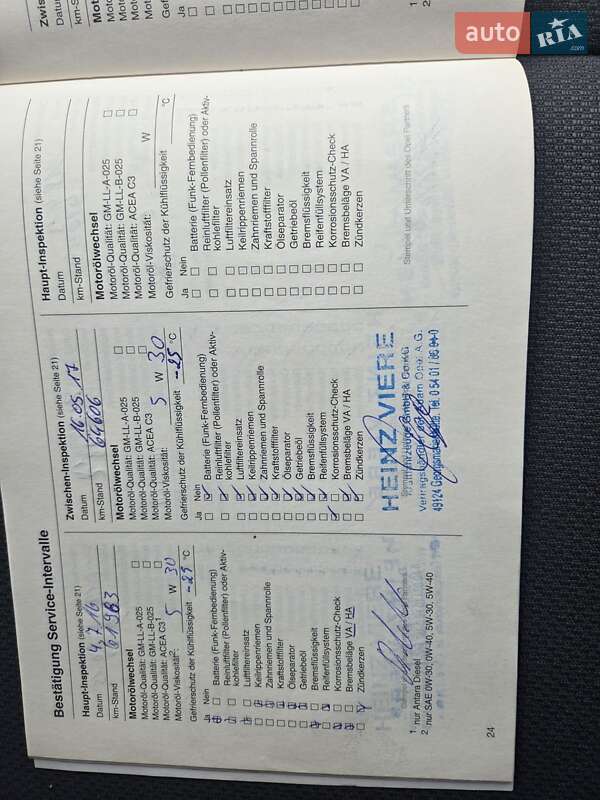 auto RIA.com
Bestätigung Service-Intervalle
Haupt-Inspektion (siehe Seite 21)
Datum 4.7.16
km-Stand 61983
Motorölwechsel
Motoröl-Qualität: GM-LL-A-025 ☐
Motoröl-Qualität: GM-LL-B-025 ☐
Motoröl-Qualität: ACEA C3¹ ☐
Motoröl-Viskosität²: 5 W 30
Gefrierschutz der Kühlflüssigkeit -25 °C
Ja Nein
Batterie (Funk-Fernbedienung)
Reinluftfilter (Pollenfilter) oder Aktiv-
kohlefilter
Luftfiltereinsatz
Keilrippenriemen
Zahnriemen und Spannrolle
Kraftstofffilter
Ölseparator
Getriebeöl
Bremsflüssigkeit
Reifenfüllsystem
Korrosionsschutz-Check
Bremsbeläge VA / HA
Zündkerzen
1 nur Antara Diesel
2 nur SAE 0W/30; 0W-40, 5W-30, 5W-40
24
Zwischen-Inspektion (siehe Seite 21)
Datum 16.05.17
km-Stand 64606
Motorölwechsel
Motoröl-Qualität: GM-LL-A-025 ☐
Motoröl-Qualität: GM-LL-B-025 ☐
Motoröl-Qualität: ACEA C3
Motoröl-Viskosität: 5 W 30
Gefrierschutz der Kühlflüssigkeit -25 °C
Ja Nein
Batterie (Funk-Fernbedienung)
Reinluftfilter (Pollenfilter) oder Aktiv-
kohlefilter
Luftfiltereinsatz
Keilrippenriemen
Zahnriemen und Spannrolle
Kraftstofffilter
Ölseparator
Getriebeöl
Bremsflüssigkeit
Reifenfüllsystem
Korrosionsschutz-Check
Bremsbeläge VA / HA
Zündkerzen
HEINZ VIERE
GmbH & Co KG
Adam Opel A.G.
49124 Tel. 0 54 01 / 86
Haupt-Inspektion (siehe Seite 21)
Datum
km-Stand
Motorölwechsel
Motoröl-Qualität: GM-LL-A-025 ☐
Motoröl-Qualität: GM-LL-B-025 ☐
Motoröl-Qualität: ACEA C3 ☐
Motoröl-Viskosität: W
Gefrierschutz der Kühlflüssigkeit °C
Ja Nein
☐ ☐ Batterie (Funk-Fernbedienung)
☐ ☐ Reinluftfilter (Pollenfilter) oder Aktiv-
kohlefilter
☐ ☐ Luftfiltereinsatz
☐ ☐ Keilrippenriemen
☐ ☐ Zahnriemen und Spannrolle
☐ ☐ Kraftstofffilter
☐ ☐ Ölseparator
☐ ☐ Getriebeöl
☐ ☐ Bremsflüssigkeit
☐ ☐ Reifenfüllsystem
☐ ☐ Korrosionsschutz-Check
☐ ☐ Bremsbeläge VA / HA
☐ ☐ Zündkerzen
Stempel und Unterschrift des Opel Partners
Zwischen
Datum
km-S
Motor
Gefri
Ja